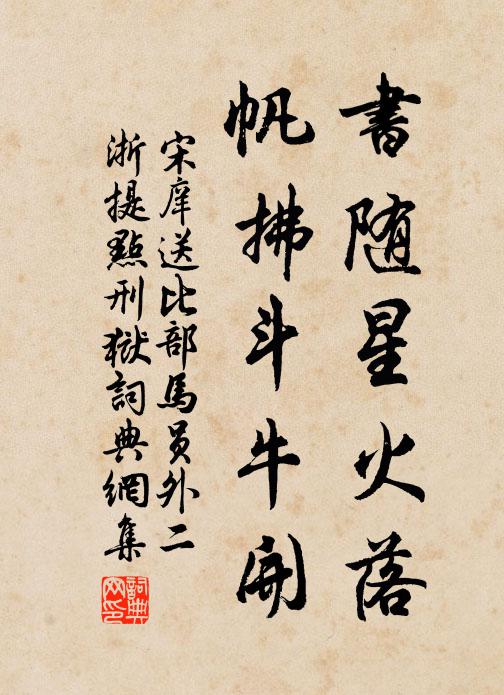 書随星火落
帆拂斗牛開
宋庠送比部馬員外二
浙提點刑獄詞典網集
詞典网印